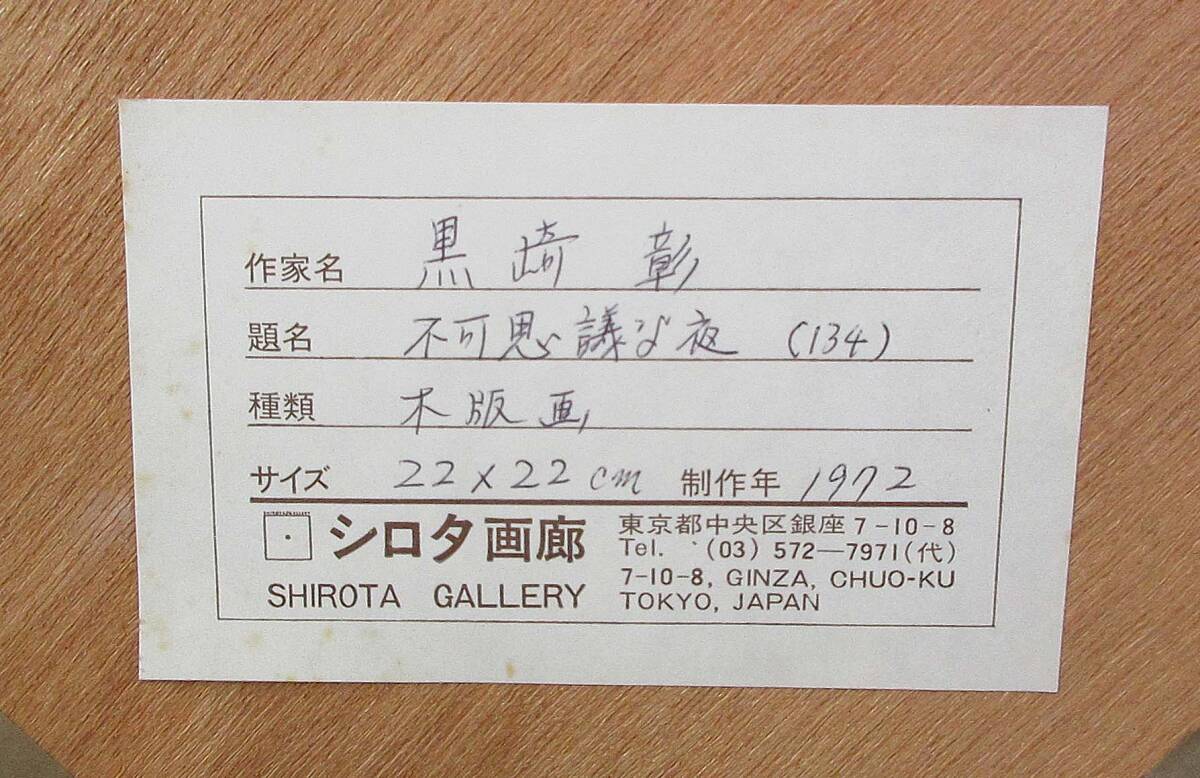 作家名 黒崎 彰
題名 不可思議な夜 (134)
種類 木版画
サイズ 22×22cm 制作年 1972
シロタ画廊
SHIROTA GALLERY
東京都中央区銀座7-10-8
Tel. (03) 572―7971(代)
7-10-8, GINZA, CHUO-KU
TOKYO, JAPAN